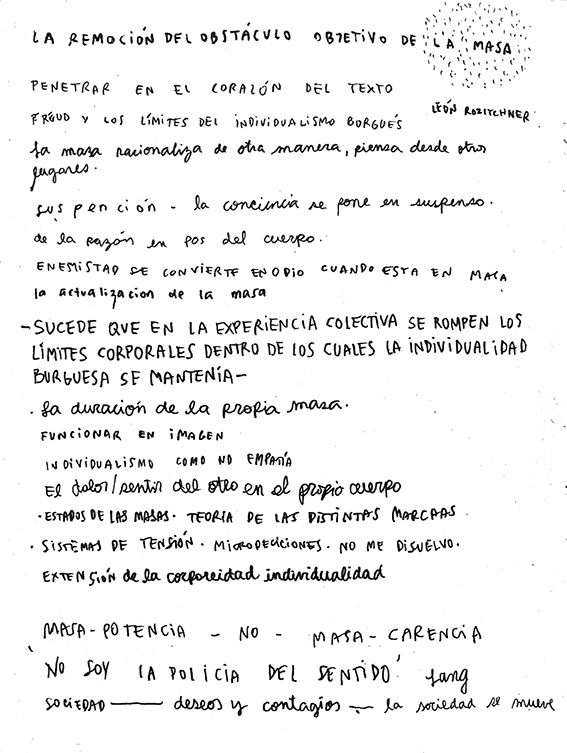 LA REMOCIÓN DEL OBSTÁCULO OBJETIVO DE LA MASA
PENETRAR EN EL CORAZÓN DEL TEXTO
FREUD Y LOS LÍMITES DEL INDIVIDUALISMO BURGUÉS LEÓN ROZITCHNER
La masa racionaliza de otra manera, piensa desde otros
lugares.
suspención - la conciencia se pone en suspenso.
de la razón en pos del cuerpo.
ENEMISTAD SE CONVIERTE EN ODIO CUANDO ESTA EN MASA
la actualizacion de la masa
- SUCEDE QUE EN LA EXPERIENCIA COLECTIVA SE ROMPEN LOS
LÍMITES CORPORALES DENTRO DE LOS CUALES LA INDIVIDUALIDAD
BURGUESA SE MANTENÍA -
. La duración de la propia masa.
FUNCIONAR EN IMAGEN
INDIVIDUALISMO COMO NO EMPATÍA
El dolor/sentir del otro en el propio cuerpo
. ESTADOS DE LAS MASAS. TEORIA DE LAS DISTINTAS
. SISTEMAS DE TENSIÓN. MICRODECICIONES. NO ME DISUELVO.
EXTENSIÓN de la corporeidad individualidad
MASA-POTENCIA - NO - MASA-CARENCIA
'NO SOY LA POLICIA DEL SENTIDO'
SOCIEDAD — deseos y contagios — la sociedad se mueve